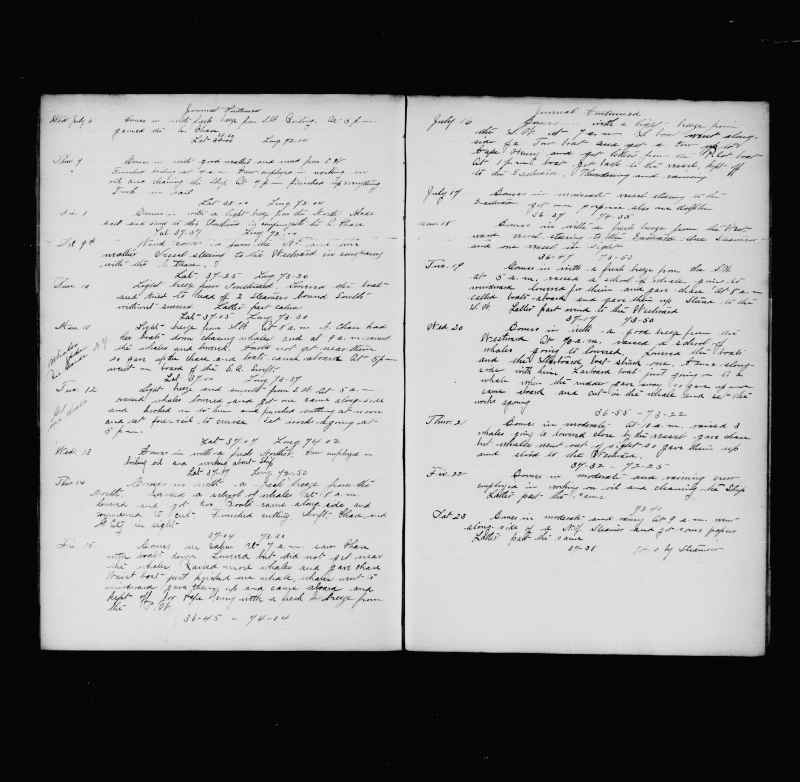 Journal Continued
Wed July 6 Comes in with fresh breeze from SW Boiling. At 3 pm
gained the A. Chase
Lat 38.00 Long 72.00
Thur 7 Comes in with good weather and wind from SW
Finished boiling at 4 a.m. Crew employed in working on
oil and cleaning the Ship. At 4 pm finished up everything
Took in sail
Lat 38.00 Long 72.04
Fri. 8 Comes in with a light breeze from the North. Made
sail and stood to the Southward in company with the A Chase
Lat 37-37 Long 72
Sat 9th Wind comes in from the N. and fine
weather. Vessel steering to the Westward in company
with the A. Chase.
Lat 37-25 Long 73-20
Sun. 10 Light breeze from Southward. Lowered the boat
and tried to head off 2 Steamers bound South
without success. Latter part calm
Lat 37-03 Long 73.30
Mon. 11 Light breeze from S.W. At 8 a.m. A. Chase had
her boats down chasing whales and at 9 a.m. raised
the whales and lowered. Could not get near them
so gave up the chase and boats came aboard. At 5 pm
went on board of the E.A. Swift
Lat 37.00 Long 73-37
Tues. 12 Light breeze and smooth from S.W. At 5 a.m.
raised whales lowered and got one came alongside
and hooked on to him and finished cutting at noon
and set fore-sail to cruise. Set work agoing at
5 p.m.
Lat 37.07 Long 74 02
Wed. 13 Comes in with a fresh Norther. Crew employed in
boiling oil and working about Ship
Lat 37-39 Long 72.50
Thur 14 Comes in with a fresh breeze from the
North. Raised a school of whales at 8 a.m.
lowered and got two. Took came along side and
commenced to cut. Finished cutting, Swift Chase, and
in sight
37-04 73.30
Fri 15 Comes in calm at 7 a.m. saw Chase
with boats down. Lowered but did not get near
the whales. Raised more whales and gave chase
Waist boat just pricked one whale, whales went to
windward gave them up and came aboard and
kept off for Cape Henry with a fresh breeze from
the S.W.
36-45 – 74-04
Journal Continued
July 16 Comes with a light breeze from
the S.W. at 7 a.m. L boat went along-
side of a Tow boat and got a tow up to
Cape Henry and got letters from the Pilot boat
At 1 p.m. boat got back to the vessel, kept off
to the Eastward. Thundering and raining
July 17 Comes in moderate vessel steering to the
Eastward got one porpoise also one dolphin
36-37 74-35
Mon. 18 Comes in with a fresh breeze from the West
ward vessel steering to the Eastward
and one vessel in sight
36-07 73-53
Tues. 19 Comes in with a fresh breeze from the S.W.
at 5 a.m. raised a school of whale going to
windward lowered for them and gave chase. At 8 a.m.
called boats aboard and gave them up. Stood to the
S.W. Latter part wind to the Westward
73-50
Wed 20 Comes in with a good breeze from the
Westward. At 10 a.m. raised a school of
whales going to leeward. Lowered the boats
and the Starboard boat struck one. Came along-
side with him. Larboard boat just going on to a
whale when the made gave away so gave up and
came aboard and cut in the whale and set the
works agoing
36-55 – 73-22
Thur. 21 Comes in moderate At 10 a.m. raised 3
whales going to leeward close by the vessel gave chase
but whales went out of sight so gave them up
and stood to the Westward.
37-32 – 72-25
Fri 22 Comes in moderate and raining crew
employed in working on oil and cleaning the Ship
Latter part the same
Sat 23 Comes in moderate and rainy At 9 a.m. went
along-side of a N.Y. Steamer and got some papers
Latter part the same
37-38 by Steamer